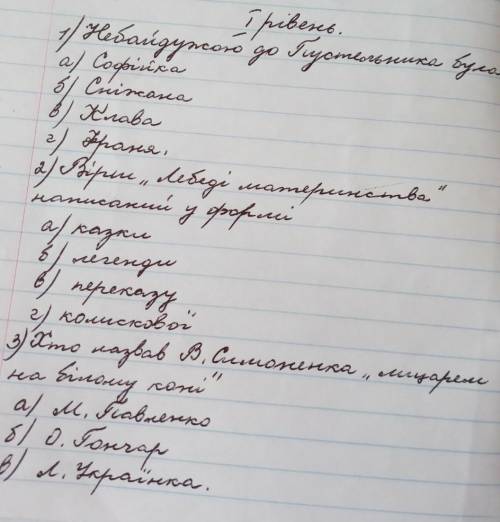 І рівень.
1) Небайдужою до Пустельника була
а) Софійка
б) Сніжана
в) Клава
г) Франя.
2) Вірш „Лебеді материнства"
написаний у формі
а) казки
б) легенди
в) переказу
г) колискової
3) Хто назвав В. Симоненка „лицарем
на білому коні"
а) М. Павленко
б) О. Гончар
в) Л. Українка.